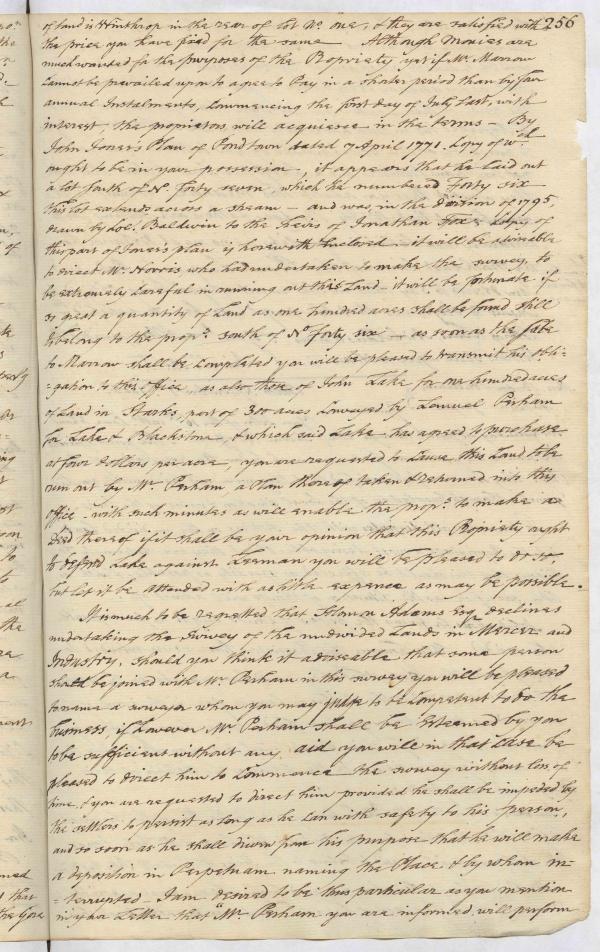 256
of land in Winthrop in the rear of lot No. one, & they are satisfied with
the price you have fixed for the same Although Monies are
much wanted for the purposes of the Propriety yet if Mr. Marrow
cannot be prevailed upon to agree to Pay in a shorter period than by four
annual Instalments, Commencing the first day of July last, with
interest, the proprietors will acquiesce in the terms – By
John Jones's Plan of Pondtown dated 7 April 1771. Copy of wch
ought to be in your possession, it appears that he laid out
a lot south of No. forty seven, which he numbered Forty six
this lot extends across a stream – and was, in the division of 1795,
drawn by Loa. Baldwin to the Heirs of Jonathan Fox a Copy of
this part of Jones's plan is herewith Enclosed – it will be adviseable
to direct Mr. Norris who had undertaken to make the survey, to
be extremely careful in running out this Land – it will be fortunate if
so great a quantity of Land as one hundred acres shall be found still
to belong to the propy. south of No. forty six – as soon as the sale
to Marrow shall be completed you will be pleased to transmit his obli-
-gation to this office, as also those of John Lake for one hundred acres
of Land in Starks, part of 300 acres surveyed by Lemuel Perham
for Lake & Blackstone, & which said Lake has agreed to purchase
at four dollars per acre, you are requested to cause this Land to be
run out by Mr. Perham a Plan thereof taken & returned into this
office with such minutes as will enable the propy. to make a
Deed thereof if it shall be your opinion that this Propriety ought
to defend Lake against Leeman you will be pleased to do so,
but let it be attended with as little expence as may be possible.
It is much to be regretted that Solomon Adams Esqr. declines
undertaking the Survey of the undivided Lands in Mercer and
Industry, should you think it adviseable that some person
should be joined with Mr. Perham in this survey you will be pleased
to name a surveyor whom you may judge to be competent to do the
business, if however Mr. Perham shall be Esteemed by you
to be sufficient without any aid you will in that case be
pleased to direct him to Commence the survey without loss of
time, & you are requested to direct him provided he shall be impeded by
the settlers to persist as long as he can with safety to his person,
and so soon as he shall driven from his purpose that he will make
a deposition in Perpetuam naming the Place & by whom in-
-terrupted – I am desired to be thus particular as you mention
in your Letter that "Mr. Perham you are informed will perform